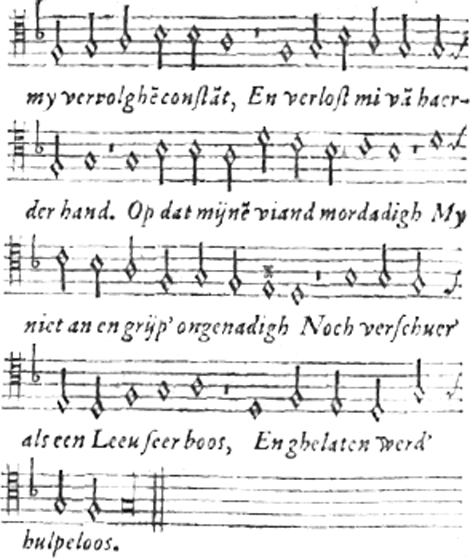 my vervolghẽ constãt, En verlost mi vã haer-
der hand. Op dat mijnẽ viand mordadigh My
niet an en grijp' ongenadigh Noch verschuer'
als een Leeu seer boos, En ghelaten werd'
hulpeloos.